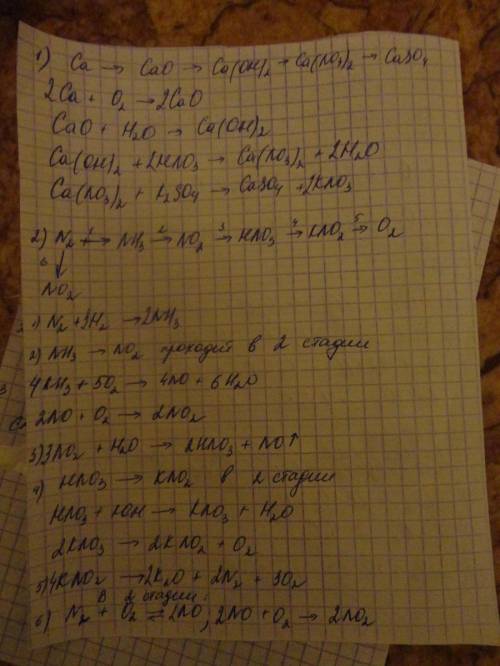 1) Ca → CaO → Ca(OH)₂ → Ca(NO₃)₂ → CaSO₄
2Ca + O₂ → 2CaO
CaO + H₂O → Ca(OH)₂
Ca(OH)₂ + 2HNO₃ → Ca(NO₃)₂ + 2H₂O
Ca(NO₃)₂ + K₂SO₄ → CaSO₄ + 2KNO₃
2) N₂ 1→ NH₃ 2→ NO₂ 3→ HNO₃ 4→ KNO₂ 5→ O₂
6 ↓
NO₂
1) N₂ + 3H₂ → 2NH₃
2) NH₃ → NO₂ проходит в 2 стадии
4NH₃ + 5O₂ → 4NO + 6H₂O
2NO + O₂ → 2NO₂
3) 3NO₂ + H₂O → 2HNO₃ + NO↑
4) HNO₃ → KNO₂ в 2 стадии
HNO₃ + KOH → KNO₃ + H₂O
2KNO₃ → 2KNO₂ + O₂
5) 4KNO₂ → 2K₂O + 2N₂ + 3O₂
в 2 стадии:
6) N₂ + O₂ ⇄ 2NO, 2NO + O₂ → 2NO₂